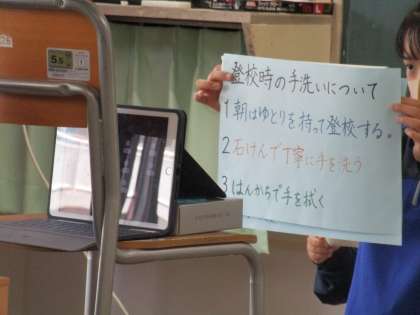 登校時の手洗いについて
1 朝はゆとりを持って登校する。
2 石けんで丁寧に手を洗う
3 はんかちで手を拭く
5.5